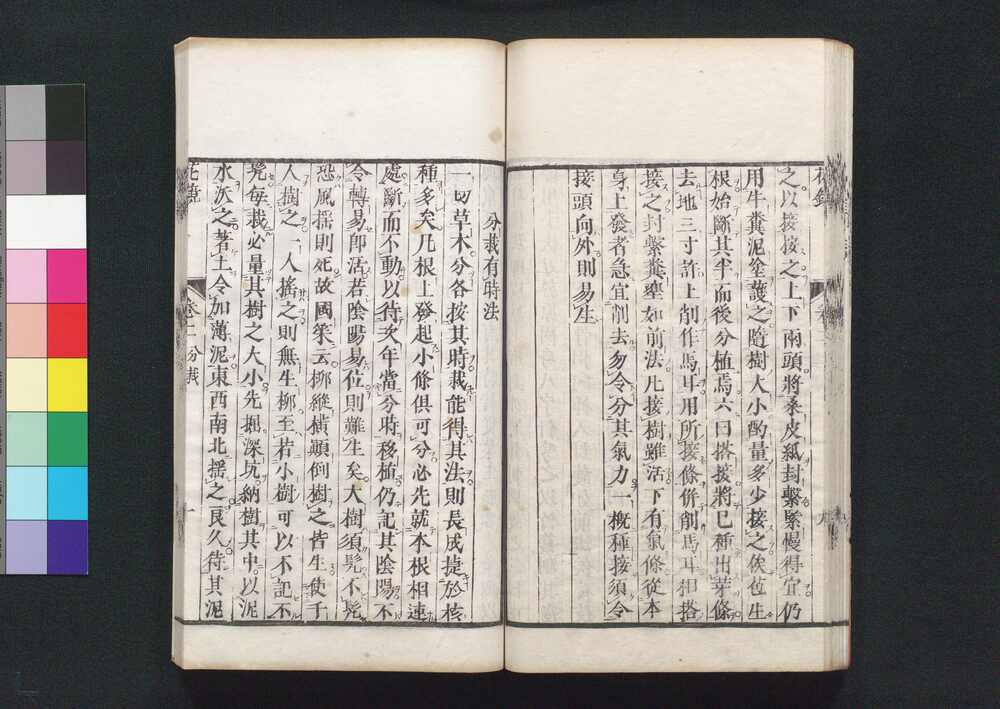 之以接接之上下兩頭將桑皮紙封繫緊慢得宜仍
用牛糞泥塗護之隨樹大小酌量多少接之俟芭生
根始斷其半而後分植焉六曰搭接將已種出芽條
去地三寸許上削作馬耳用所接條併削馬耳相搭
接之封繫糞壅如前法凡接樹雖活下有氣條從本
身上發者急宜削去勿令分其氣力一概種接須令
接頭向外則易生
分栽有時法
一切草木分各按其時栽能得其法則長成捷於核
種多矣凡根上發起小條俱可分必先就本根相連
處斷而不動以待次年當分時移植仍記其陰陽不
令轉易卽活若陰陽易位則難生矣大樹須髠不髠
恐風摇則死故國策云栁縱橫顚倒樹之皆生使千
人樹之一人搖之則無生栁至若小樹可以不記不
髠每栽必量其樹之大小先掘深坑納樹其中以泥
水沃之著土令加薄泥東西南北摇之良久待其泥
卷二 分栽